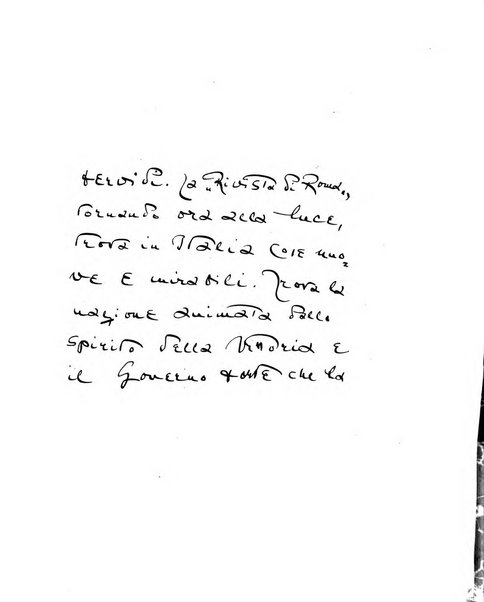 fervidi. La „Rivista di Roma„,
tornando ora alla luce,
trova in Italia cose nuo=
ve e mirabili. Trova la
nazione animata dallo
spirito della Vittoria e
il Governo forte che la